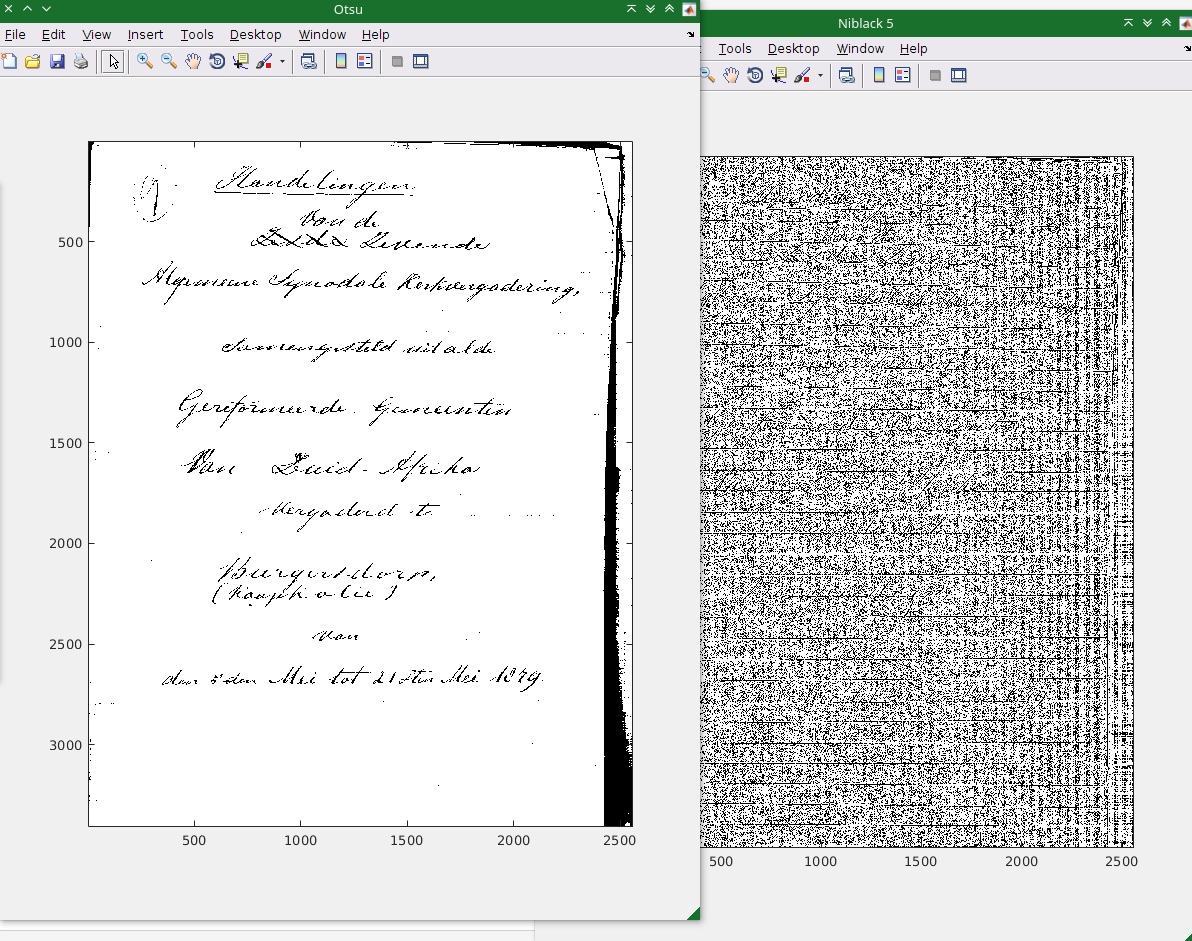 Otsu
File Edit View Insert Tools Desktop Window Help
9
Handelingen
Van de
Zevende
Algemeene Synodale Kerkvergadering,
Samengesteld uit al de
Gereformeerde Gemeenten
Van Zuid-Afrika
Vergaderd te
Burgersdorp,
(Kaapkolie)
van
den 5den Mei tot 21sten Mei 1879.
500
1000
1500
2000
2500
3000
500 1000 1500 2000 2500
Niblack 5
Tools Desktop Window Help
500 1000 1500 2000 2500